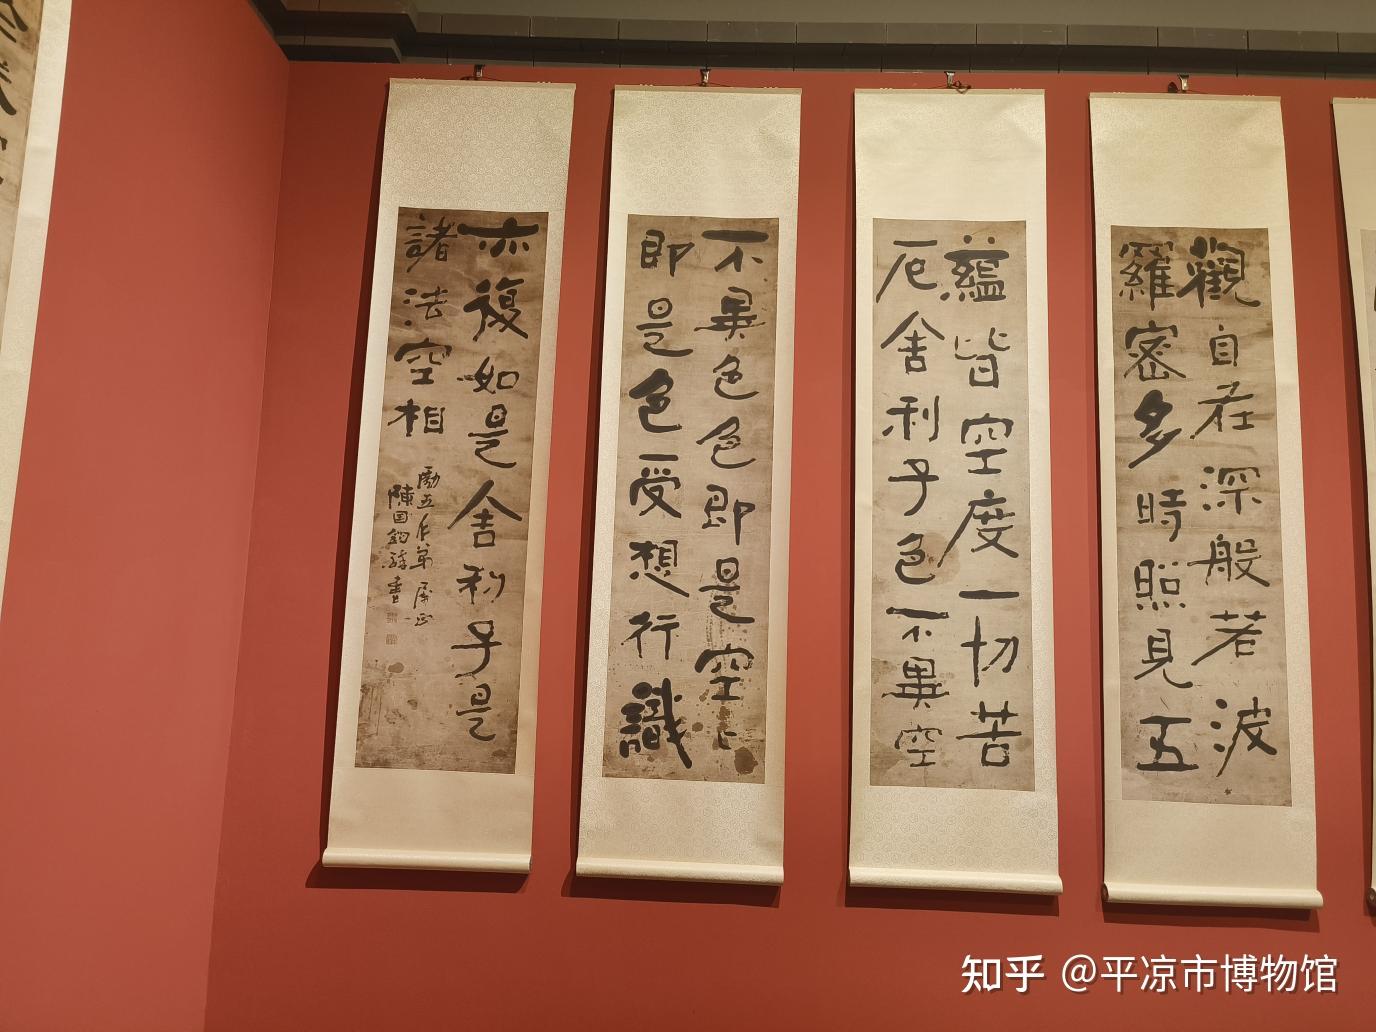 觀自在深般若波
羅密多時照見五
蘊皆空度一切苦
厄舍利子色不異空
不異色色即是空
即是色受想行識
亦復如是舍利子是
諸法空相
勵五 弟 正
陳国鈞 書
知乎 @平凉市博物馆